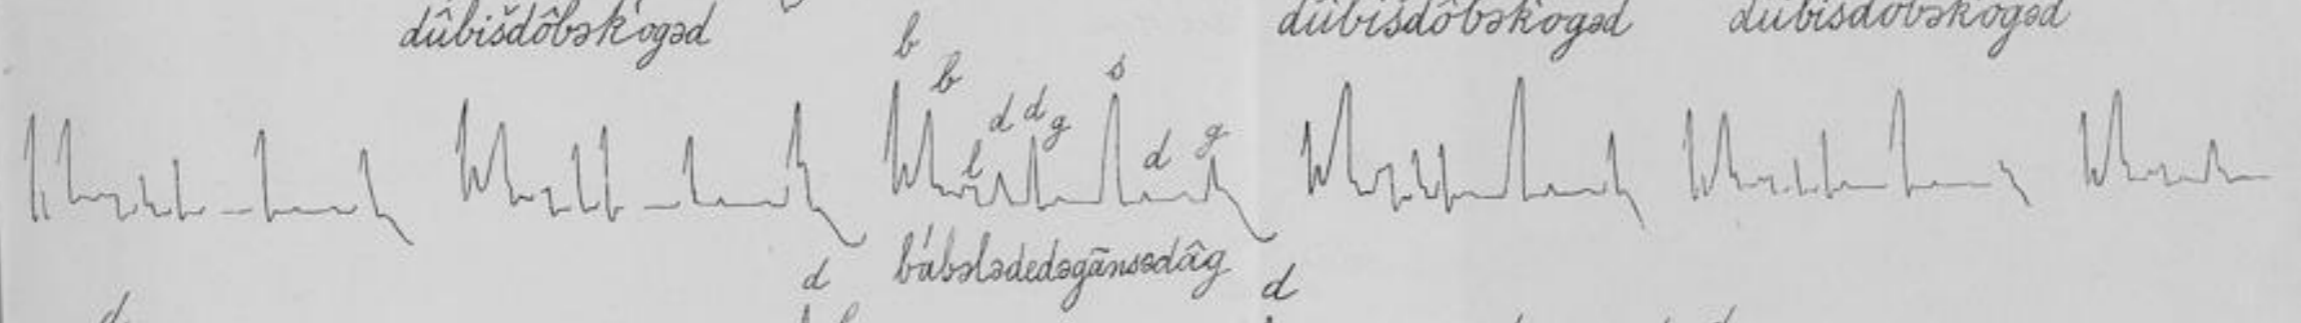 dûbišdôbəkʼogəd dûbišdôbəkʼogəd dûbišdôbəkʼogəd
b
b
s
d d g
l d g
bábələdedəgānsədâg
d d